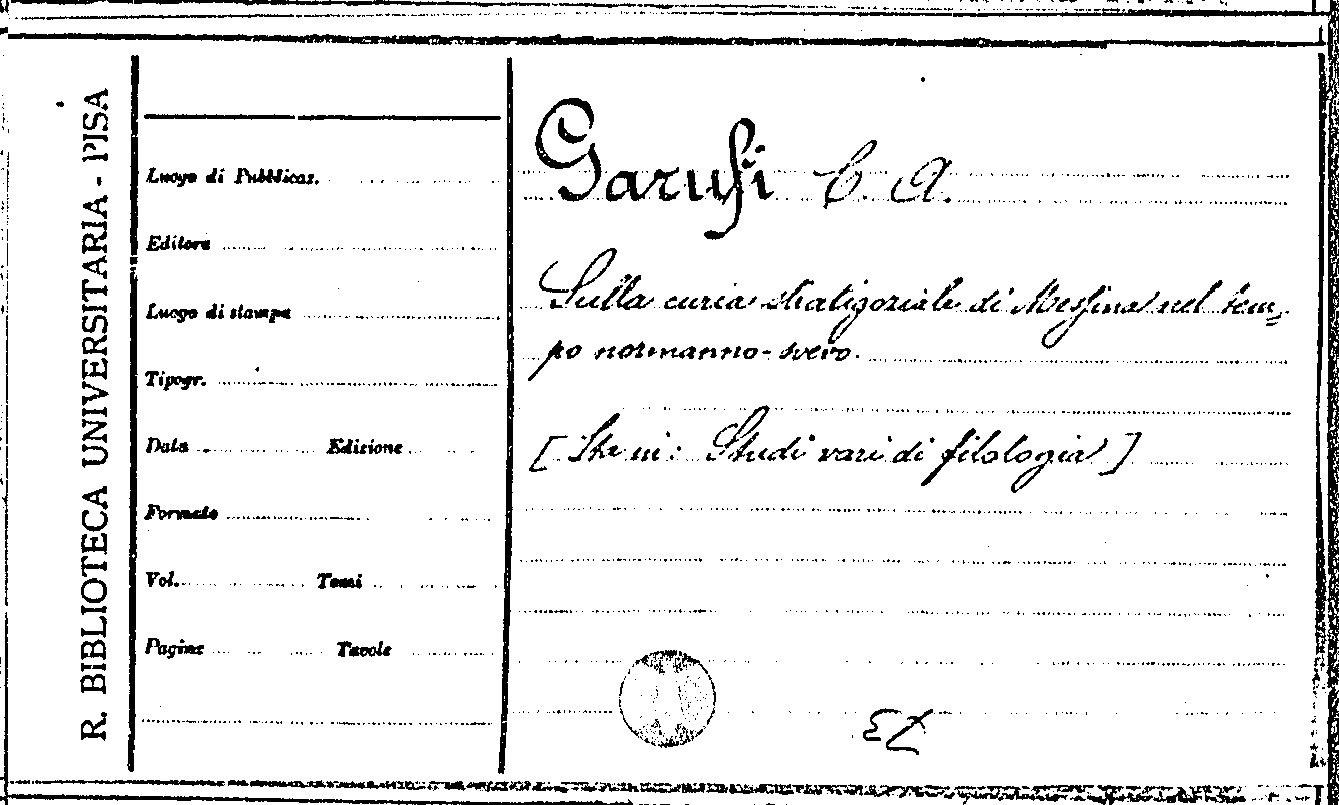 R. BIBLIOTECA UNIVERSITARIA - PISA
Luogo di Pubblicaz.
Editore
Luogo di stampa
Tipogr.
Data Edizione
Formato
Vol. Tomi
Pagine Tavole
Garufi C. A.
Sulla curia stratigoziale di Messina nel tem-
po normanno-svevo.
[Sta in: Studi vari di filologia]